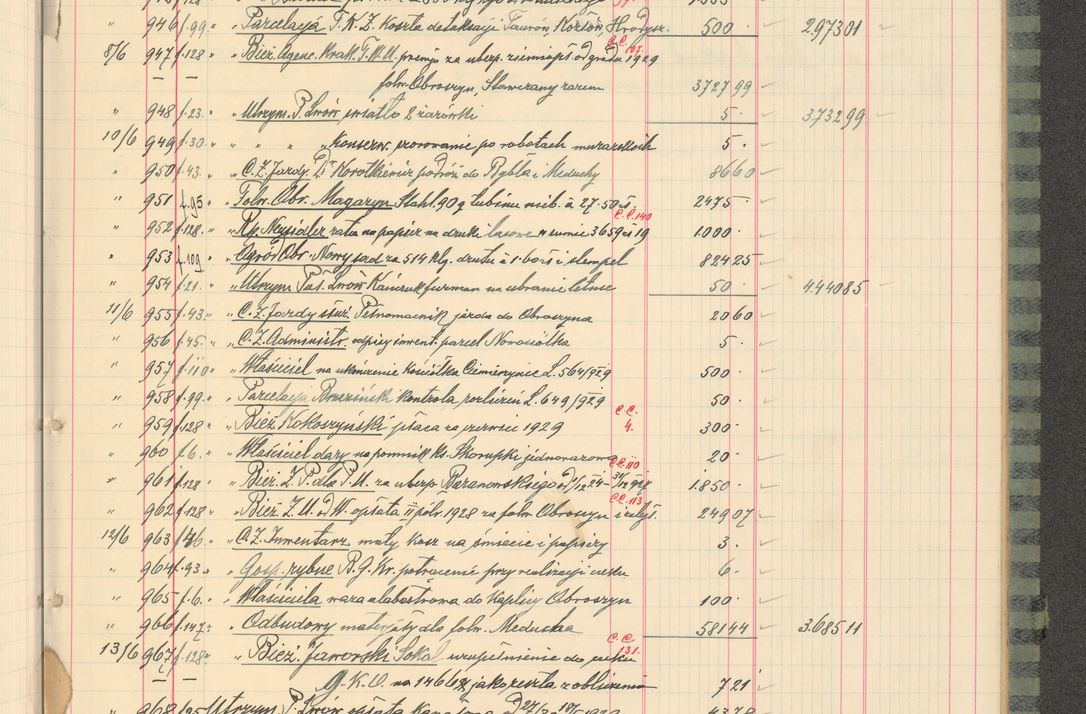 " 946 f.99. " Parcelacja T.K.Z. koszta detaksacji Hrodyn. 500 · 297301
C.C. 107.
8/6 947 f.128 " Bież. Agenc. Krak. T.W.U. premja za ubezp. ziemiopł. od gradu 1929
folw. Obroszyn, Stawczany razem 372799
" 948 f.23. " Utrzym. P. Lwów, światło 2 żarówki 5 · 373299
10/6 949 f.30. " " " " Konserw. po robotach murarskich 5 ·
" 950 f.43. " C.Z. Jazdy Dr Korotkiewicz podróż do Rybła i Meduchy 8660
" 951 f.95 " Folw. Obr. Magazyn Stahl. 90 q łubinu nieb. à 27·50 zł. 2475 ·
C.C. 140
" 952 f.128. " Rp. Neusidler rata na papier na druki lasowe w sumie 3659 zł 19 1000 ·
" 953 f.109 " Ogród Obr. Nowy sad za 514 klg. drutu à 1·60 zł i stempel 82425
" 954 f.21. " Utrzym. Pał. Lwów furman na ubranie letnie 50 · 444085
11/6 955 f.43. " C.Z. Jazdy służ. Pełnomocnik jazda do Obroszyna 2060
" 956 f.45. " C.Z. Administr. odpisy inwent. parcel Nowosiółka 5 ·
" 957 f.110 " Właściciel na ukończenie Kościółka Ciemierzynce L. 564/929 500 ·
" 958 f.99. " Parcelacja Brzeziński kontrola L. 649/929 50 ·
C.C. 4.
" 959 f.128 " Bież. Kokoszyński płaca za czerwiec 1929 300 ·
" 960 f.6. " Właściciel dary na pomnik ks. Skorupki jednorazowo 20 ·
C.C. 110
" 961 f.128 " Bież. Z.P. dla P.U. za ubezp. Baranowskiego 1850 ·
C.C. 113
" 962 f.128 " Bież. Z.U. D.W. opłata II półr. 1928 za folw. Obroszyn 24907
12/6 963 f.46. " C.Z. Inwentarz mały kosz na śmiecie i papiery 3 ·
" 964 f.93. " Gosp. rybne B.G.Kr. potrącenie przy realizacji czeku 6 ·
" 965 f.6. " Właściciela waza alabastrowa do Kaplicy Obroszyn 100 ·
" 966 f.147 " Odbudowy materjały dla folw. Meducha 58144 368511
C.C. 131.
13/6 967 f.128 " Bież. Jaworski Sokal uzupełnienie do czeku
G.K.O. na jako reszta z obliczenia 721
" 968 Utrzym. P. Lwów opłata 4378